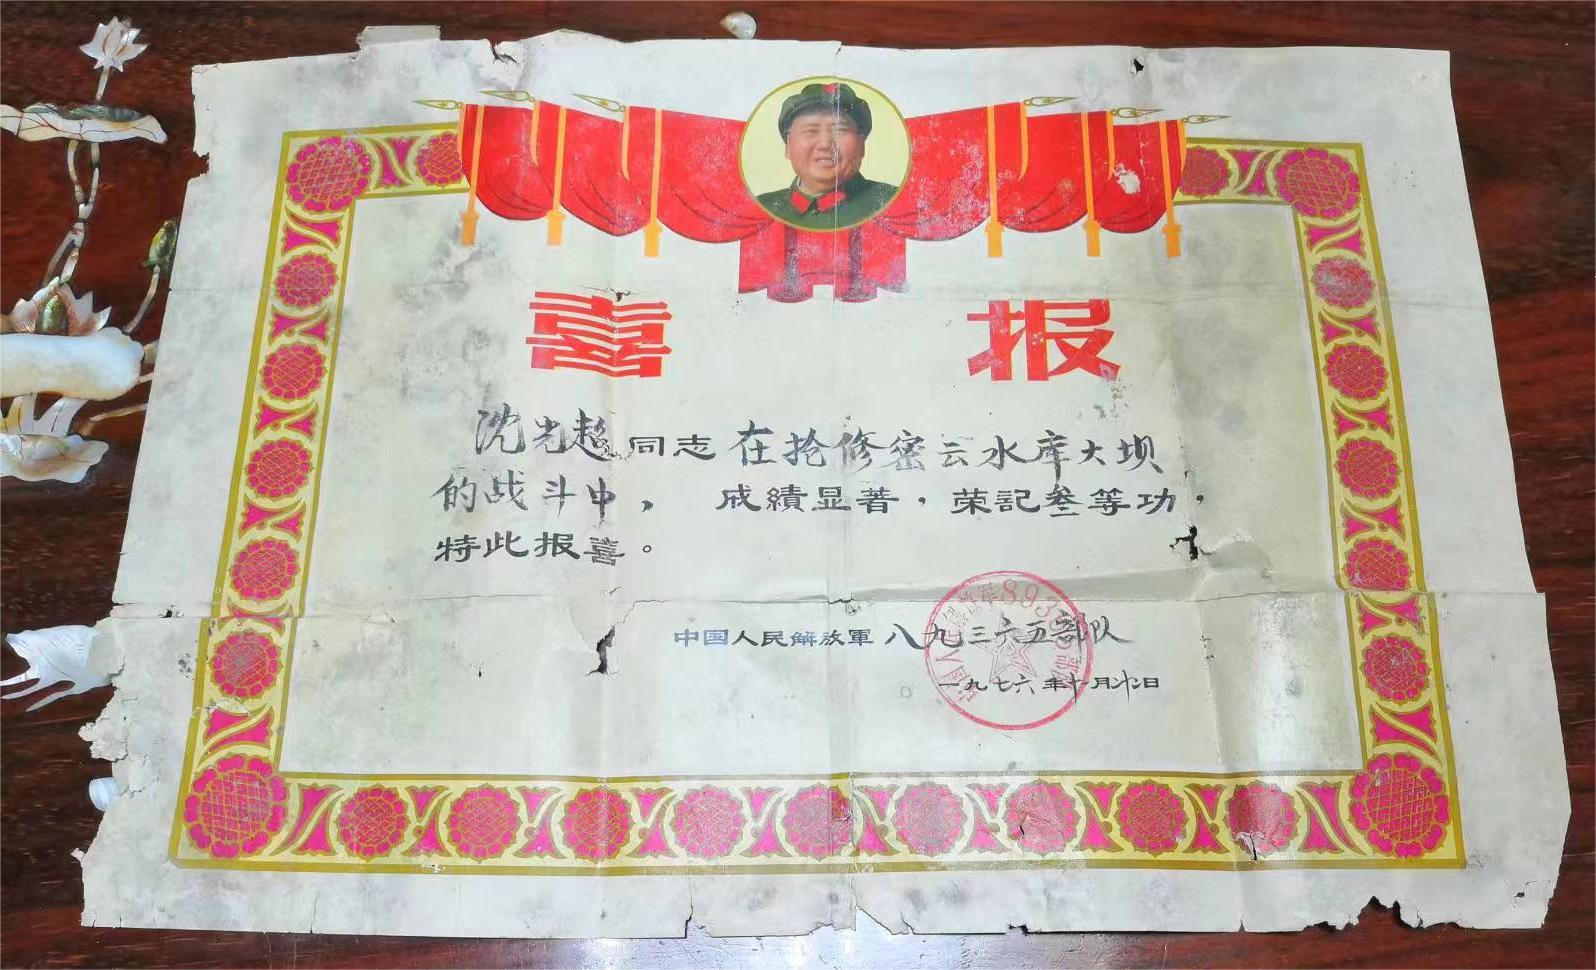 喜报
沈光超同志在抢修密云水库大坝
的战斗中，成績显著，荣記叁等功，
特此报喜。
中国人民解放軍八九三六五部队
一九七六年十月廿二日